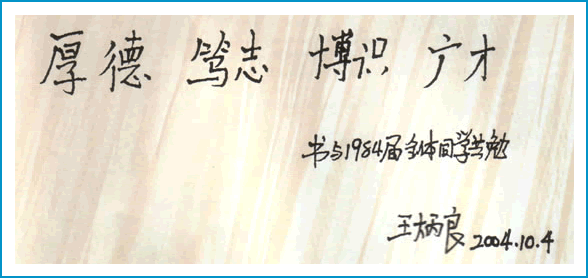 厚德 笃志 博识 广才
书与1984届全体同学共勉
王炳良 2004.10.4